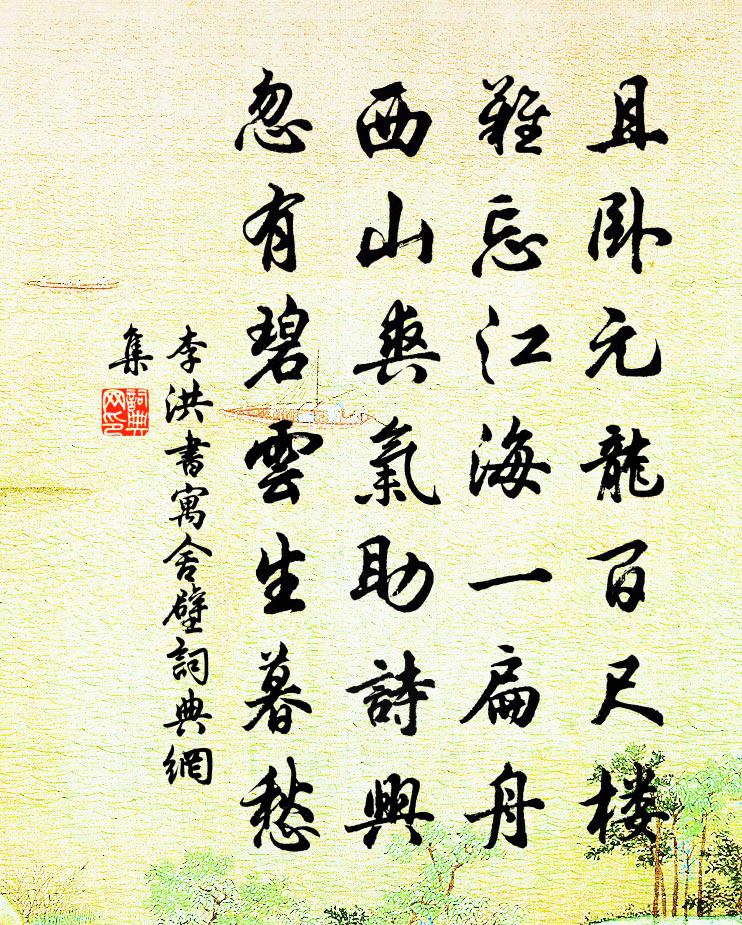 且卧元龍百尺楼
難忘江海一扁舟
西山爽氣助詩興
忽有碧雲生暮愁
李洪書寓舍壁詞典網
集
詞典
网印